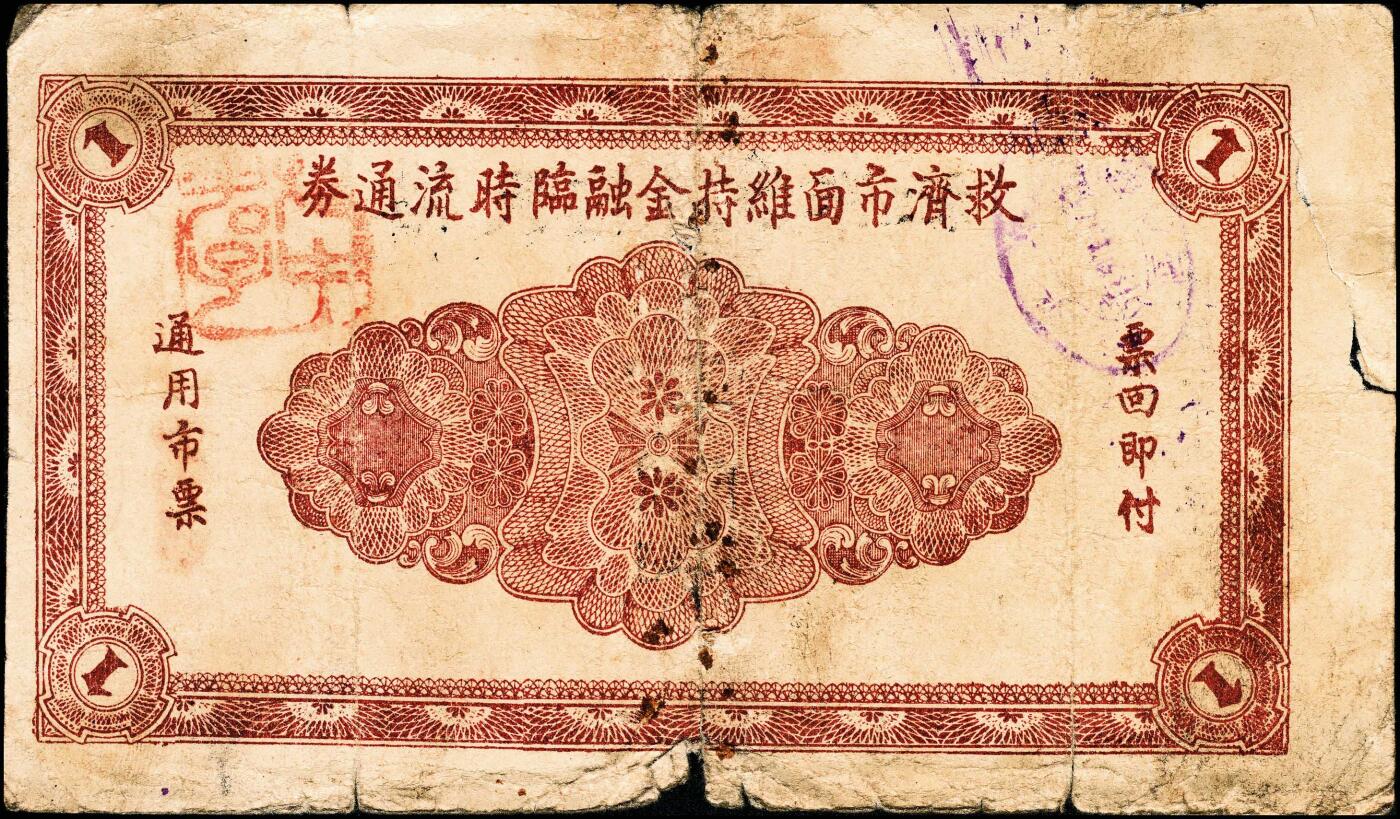 救濟市面維持金融臨時流通券
票回即付
通用市票
1
1
1
1